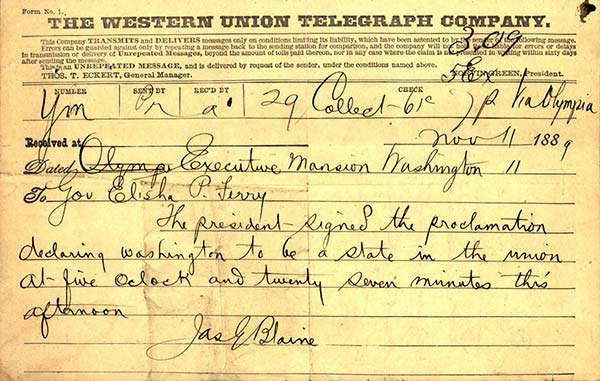 Form No. 1.
THE WESTERN UNION TELEGRAPH COMPANY.
This Company TRANSMITS and DELIVERS messages only on conditions limiting its liability, which have been assented to by the sender of the following message.
Errors can be guarded against only by repeating a message back to the sending station for comparison, and the company will not hold itself liable for errors or delays
in transmission or delivery of Unrepeated Messages, beyond the amount of tolls paid thereon, nor in any case where the claim is not presented in writing within sixty days
after sending the message.
This is an UNREPEATED MESSAGE, and is delivered by request of the sender, under the conditions named above.
THOS. T. ECKERT, General Manager. NORVIN GREEN, President.
NUMBER SENT BY REC'D BY CHECK
29 Collect-61c Via Olympia
Received at Nov 11 1889
Dated Olymp Executive Mansion Washington 11
To Gov Elisha P. Ferry
The president signed the proclamation
declaring washington to be a state in the union
at five oclock and twenty seven minutes this
afternoon
Jas G Blaine